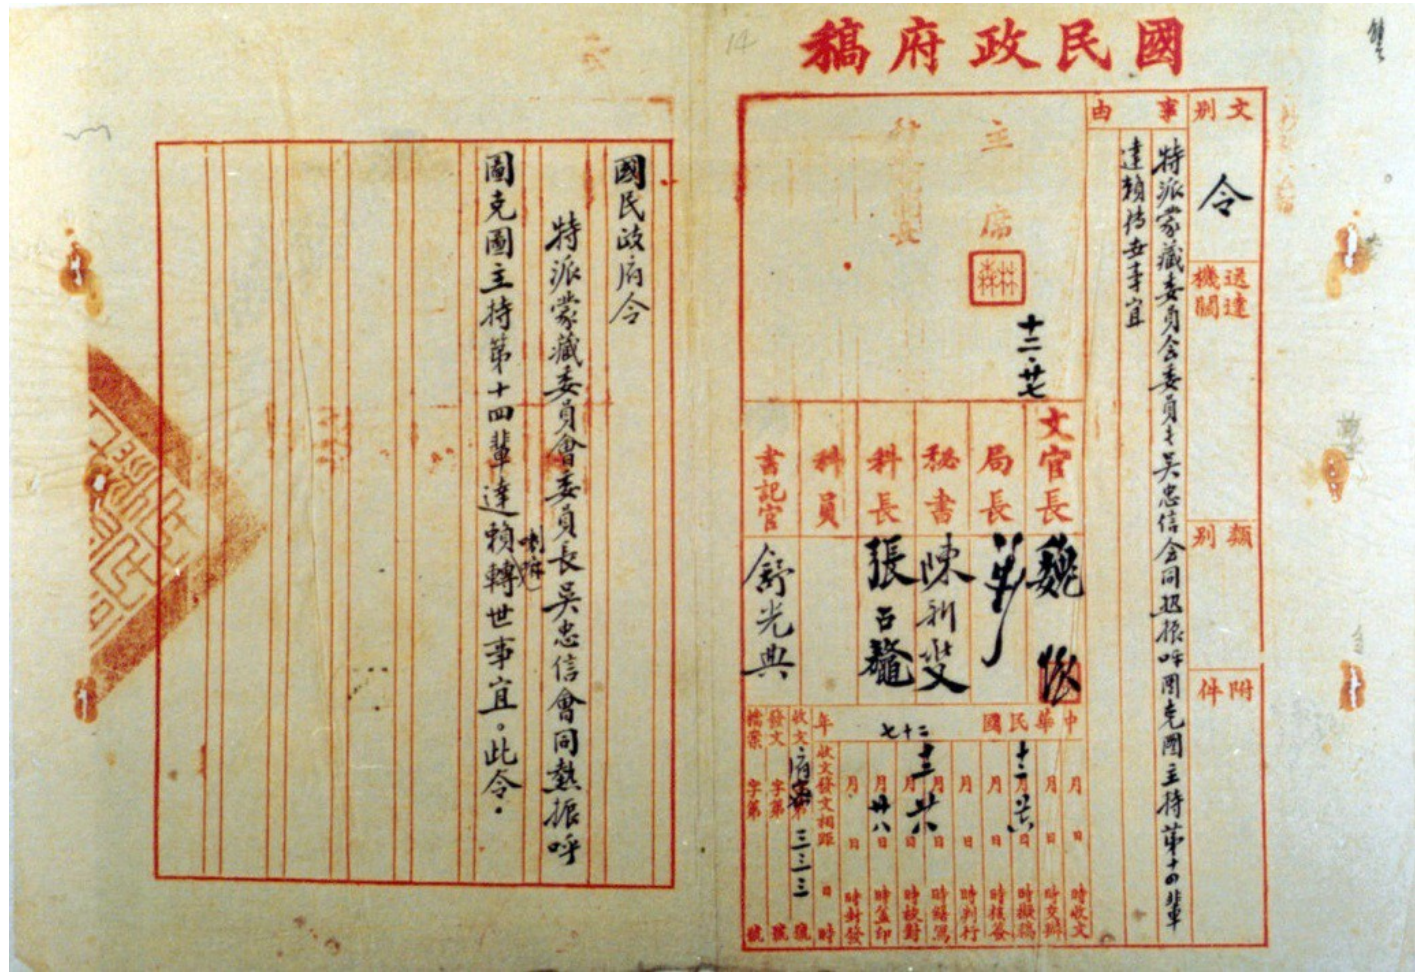 國民政府稿
文別
令
送達機關
類別
附件
事由
特派蒙藏委員會委員長吳忠信會同熱振呼圖克圖主持第十四輩
達賴轉世事宜
主席
十二、廿七
文官長
魏懷
局長
秘書
科長
科員
書記官
舒光典
中華民國二十七年
月日時收文
月日時交辦
十二月廿六日時擬稿
月日時核簽
月日時判行
月日時繕寫
月日時校對
月廿八日時蓋印
月日時封發
收文發文相距日時
收文字第三三三號
發文字第號
檔案字第號
14
國民政府令
特派蒙藏委員會委員長吳忠信會同熱振呼
圖克圖主持第十四輩達賴喇嘛轉世事宜。此令。